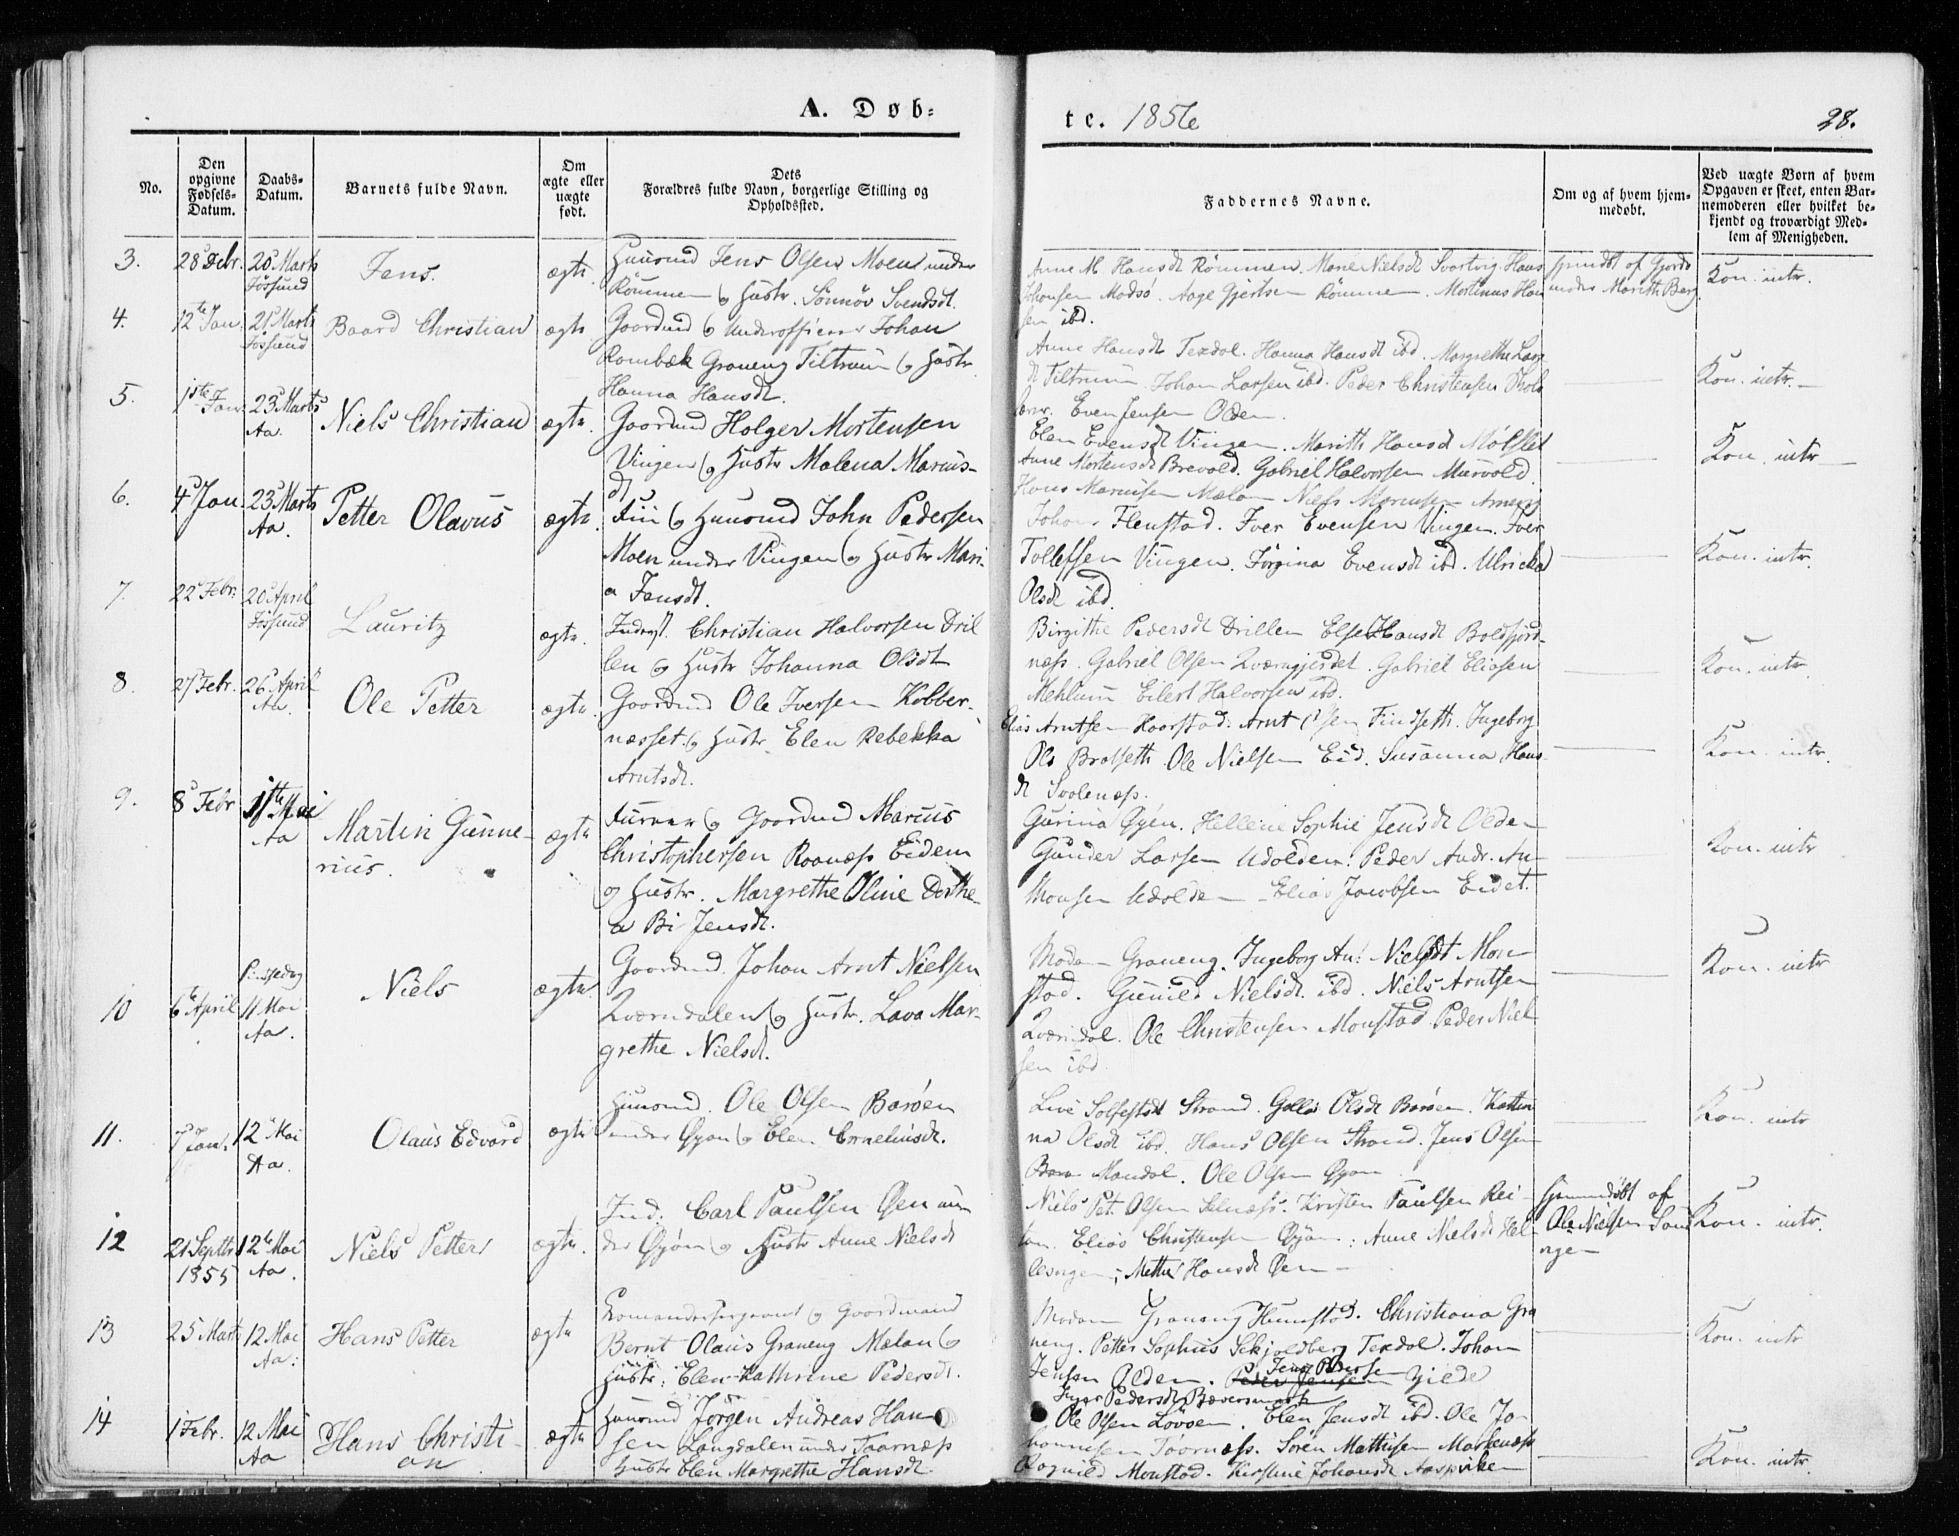 A. Døb-
te. 1856
28.
No.
Den opgivne Fødsels-Datum.
Daabs-Datum.
Barnets fulde Navn.
Om ægte eller uægte født.
Dets Forældres fulde Navn, borgerlige Stilling og Opholdssted.
Faddernes Navne.
Om og af hvem hjem-medøbt.
Ved uægte Børn af hvem Opgaven er skeet, enten Bar-nemoderen eller hvilket be-kjendt og troværdigt Med-lem af Menigheden.
3. 28 Febr. 20 Marts Jøssund Jens. ægte Huusmd Jens Olsen Moen under
Rømmen og Hustr. Sønnøv Svendsdt.
Anne M. Hansdt Rømmen. Marie Nielsdt Svartvig. Hans
Johansen Modsø. Aage Gjertsen Rømmen. Martinus Han
sen ibd.
Kon. intr.
4. 12te Jan. 21 Marts Jøssund Baard Christian ægte Gaardmd og Underofficer Johan
Rombæk Graneng Tiltrum og Hustr
Hanna Hansdt.
Anne Hansdt Texdal. Hanna Hansdt ibd. Margrethe Lars
dt Tiltrum. Johan Larsen ibd. Peder Christensen
Even Jensen Olden.
Kon. intr.
5. 1ste Jan. 23 Marts Aa. Niels Christian ægte. Gaardmd Holger Mortensen
Vingen og Hustr Malena Marius-
dt
Elen Evensdt Vingen. Marith Hansdt
Anne Mortensdt Brevold. Gabriel Halvorsen Murvold.
Hans Mariusen Mælan Niels
Kon. intr
6. 4 Jan. 23 Marts Aa. Petter Olavus ægte. og Huusmd John Pedersen
Moen under Vingen og Hustr Mari-
a Jensdt.
Johan Flenstad. Iver Evensen Vingen. Iver
Tollefsen Vingen. Jørgina Evensdt ibd. Ulricka
Olsdt ibd.
Kon. intr.
7. 22 Febr. 20 April Jøssund Lauritz ægte. Inderst. Christian Halvorsen Dril
len og Hustr Johanna Olsdt
Birgithe Pedersdt Drillen Else Hansdt Boldfjord-
næss. Gabriel Olsen Qværngjerdet. Gabriel Eliasen
Mehlum Eilert Halvorsen ibd.
Kon. intr.
8. 27 Febr. 26 April Aa. Ole Petter ægte. Gaardmd Ole Iversen Kobber-
næsset. og Hustr Elen Rebekka
Arntsdt.
Elias Arntsen Haarstad. Arnt Olsen Findseth. Ingeborg
Ols Bratseth. Ole Nielsen Eid. Susanna Hans-
dt Svolenæss.
Kon. intr.
9. 8 Febr 1ste Mai Aa Martin Gunne-
rius. ægte og Gaardmd Marcus
Christophersen Raanæss Eidem
og Hustr. Margrethe Oline Dorthe-
a Bi Jensdt.
Gurina Øyen. Hellene Sophie Jensdt Olden
Gunder Larsen Udolden. Peder Andr. An-
Monsen Udolden - Elias Jacobsen Eidet.
Kon. intr
10 6te April Pinsedag 11 Mai Aa. Niels ægte. Gaardmd. Johan Arnt Nielsen
Qværndalen og Hustr. Lava Mar-
grethe Nielsdt.
Madam Graneng. Ingeborg An: Nielsdt Mon-
stad. Gunild Nielsdt. ibd. Niels Arntsen
Qværndal. Ole Christensen Monstad Peder Niel-
sen ibd
Kon. intr
11. 7 Jan. 12 Mai Aa. Olaus Edvard ægte Huusmd. Ole Olsen Barøen
under Øyan og Elen Corneliusdt.
Live Strand. Olsdt Barøen. Kathri
na Olsdt ibd. Hans Olsen Strand. Jens Olsen
Mandal. Ole Olsen Øyan
Kon. intr
12 21 Septbr 1855 12te Mai Aa. Niels Petter ægte. Ind. Carl Paulsen Øen un-
der Øyan og Hustr Anne Nielsdt
Niels Pet. Olsen Selnæss. Kristen Paulsen Rei-
tan. Elias Christensen Øyan: Anne Nielsdt
; Mette Hansdt Øen
Hjemmedøbt af
Ole Nielsen
Kon. intr.
13 25 Marts 12 Mai Aa. Hans Petter ægte Comandersergeant og Gaardmand
Bernt Olaus Graneng Mælan og
Hustr. Elen Kathrine Pedersdt.
Madam Graneng Hunstad. Christiana Gra
neng. Petter Sophus Skjoldberg Texdal. Johan
Jensen Olden. Gjede
Kon. intr
14 1 Febr. 12 Mai Aa Hans Christi-
an ægte Huusmd Jørgen Andreas Han
sen Langdalen under Taarnæss
Hustr Elen Margrethe Hansdt.
Inger Pedersdt
Ole Olsen Løvøen. Elen Jensdt ibd. Ole Jo-
hannesen Taarnæss. Søren Mathisen
Ragnild Monstad. Kirstine Johansdt Aaspviken
Kon. intr.